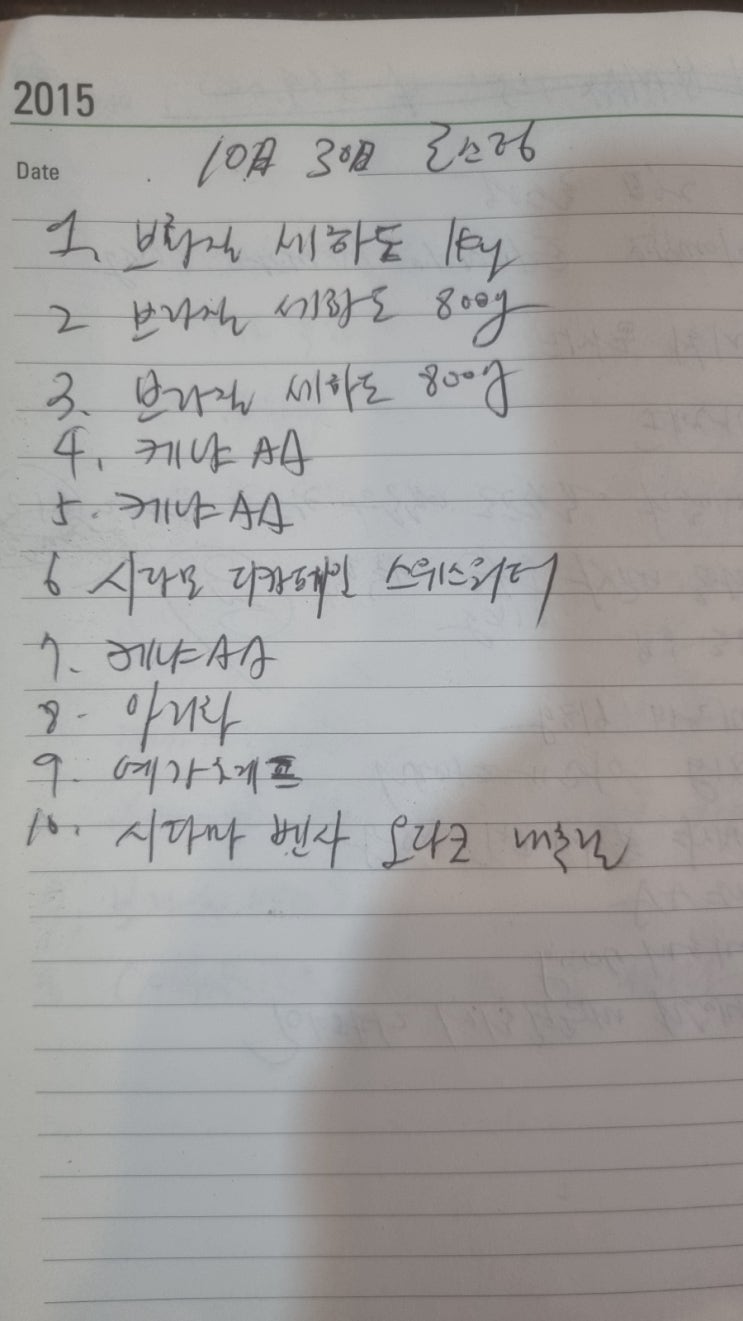 2015
Date 10月 3日 로스팅
1. 브라질 세하도 1kg
2 브라질 세하도 800g
3. 브라질 세하도 800g
4. 케냐 AA
5. 케냐 AA
6 시다모 디카페인 스위스워터
7. 케냐 AA
8. 아리차
9. 예가체프
10. 시다마 벤사 오라코 내추럴